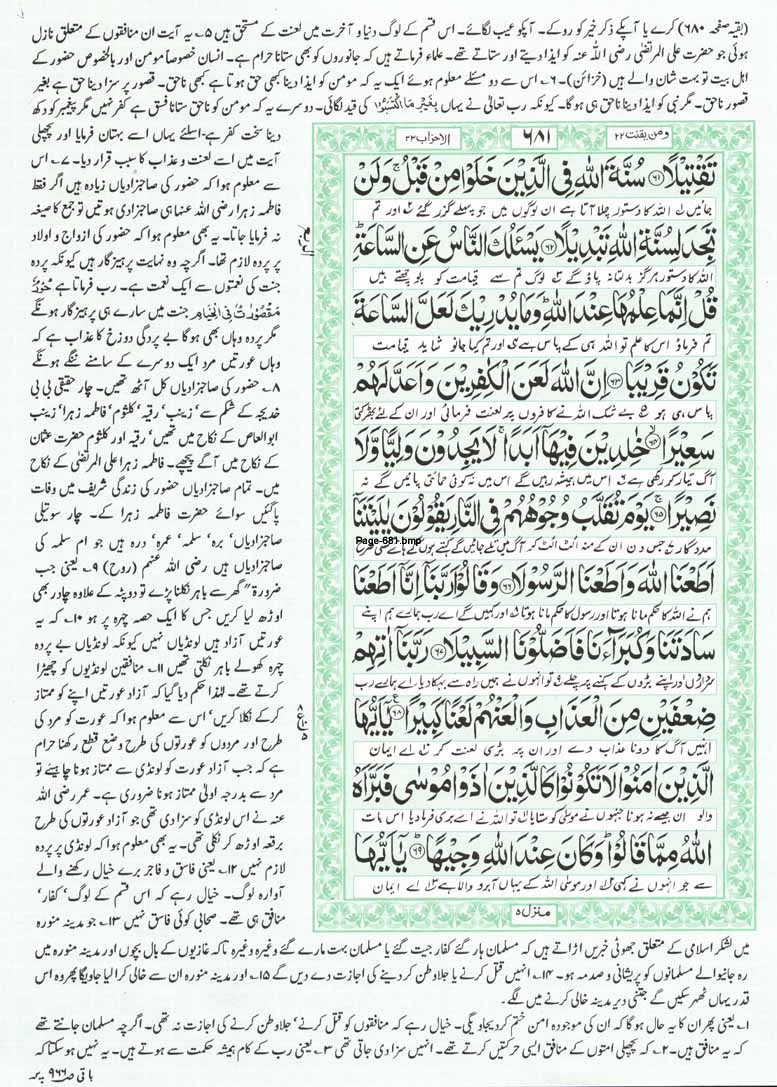 (بقیہ صفحہ ۶۸۰) کرے یا آپکے ذکر خیر کو روکے۔ آپکو عیب لگائے۔ اس قسم کے لوگ دنیا و آخرت میں لعنت کے مستحق ہیں ۵۔ یہ آیت ان منافقوں کے متعلق نازل
ہوئی جو حضرت علی المرتضیٰ رضی اللہ عنہ کو ایذا دیتے اور ستاتے تھے۔ علماء فرماتے ہیں کہ جانوروں کو بھی ستانا حرام ہے۔ انسان خصوصاً مومن اور بالخصوص حضور کے
اہل بیت تو بہت شان والے ہیں (خزائن)۔ ۶۔ اس سے دو مسئلے معلوم ہوئے ایک یہ کہ مومن کو ایذا دینا کبھی حق ہوتا ہے کبھی ناحق۔ قصور پر سزا دینا حق ہے بغیر
قصور ناحق۔ مگر نبی کو ایذا دینا ناحق ہی ہوگا۔ کیونکہ رب تعالیٰ نے یہاں بِغَیْرِ مَا اکْتَسَبُوْا کی قید لگائی۔ دوسرے یہ کہ مومن کو ناحق ستانا فسق ہے کفر نہیں مگر پیغمبر کو دکھ
دینا سخت کفر ہے۔ اسلئے یہاں اسے بہتان فرمایا اور پچھلی
آیت میں اسے لعنت و عذاب کا سبب قرار دیا۔ ۷۔ اس
سے معلوم ہوا کہ حضور کی صاجزادیاں زیادہ ہیں اگر فقط
فاطمہ زہرا رضی اللہ عنہا ہی صاجزادی ہوتیں تو جمع کا صیغہ
نہ فرمایا جاتا۔ یہ بھی معلوم ہوا کہ حضور کی ازواج و اولاد
پر پردہ لازم تھا۔ اگرچہ وہ نہایت پرہیزگار ہیں کیونکہ پردہ
جنت کی نعمتوں سے ایک نعمت ہے۔ رب فرماتا ہے حُوْرٌ
مَّقْصُوْرٰتٌ فِی الْخِیَامِ جنت میں سارے ہی پرہیزگار ہونگے
مگر پردہ وہاں بھی ہوگا بے پردگی دوزخ کا عذاب ہے کہ
وہاں عورتیں مرد ایک دوسرے کے سامنے ننگے ہونگے
۸۔ حضور کی صاجزادیاں کل آٹھ تھیں۔ چار حقیقی بی بی
خدیجہ کے شکم سے' زینب' رقیہ' کلثوم' فاطمہ زہرا' زینب
ابوالعاص کے نکاح میں تھیں' رقیہ اور کلثوم حضرت عثمان
کے نکاح میں آگے پیچھے۔ فاطمہ زہرا علی المرتضیٰ کے نکاح
میں۔ تمام صاجزادیاں حضور کی زندگی شریف میں وفات
پاگئیں سوائے حضرت فاطمہ زہرا کے۔ چار سوتیلی
صاجزادیاں' برہ' سلمہ' عمرہ' درہ ہیں جو ام سلمہ کی
صاجزادیاں ہیں رضی اللہ عنہم (روح) ۹۔ یعنی جب
ضرورۃً گھر سے باہر نکلنا پڑے تو دوپٹہ کے علاوہ چادر بھی
اوڑھ لیا کریں جس کا ایک حصہ چہرہ پر ہو ۱۰۔ کہ یہ
عورتیں آزاد ہیں لونڈیاں نہیں کیونکہ لونڈیاں بے پردہ
چہرہ کھولے باہر نکلتی تھیں ۱۱۔ منافقین لونڈیوں کو چھیڑا
کرتے تھے۔ لہٰذا حکم دیا گیا کہ آزاد عورتیں اپنے کو ممتاز
کرکے نکلا کریں' اس سے معلوم ہوا کہ عورت کو مرد کی
طرح اور مردوں کو عورتوں کی طرح وضع قطع رکھنا حرام
ہے کہ جب آزاد عورت کو لونڈی سے ممتاز ہونا چاہیئے تو
مرد سے بدرجہ اولیٰ ممتاز ہونا ضروری ہے۔ عمر رضی اللہ
عنہ نے اس لونڈی کو سزا دی تھی جو آزاد عورتوں کی طرح
برقعہ اوڑھ کر نکلی تھی۔ یہ بھی معلوم ہوا کہ لونڈی پر پردہ
لازم نہیں ۱۲۔ یعنی فاسق و فاجر برے خیال رکھنے والے
آوارہ لوگ۔ خیال رہے کہ اس قسم کے لوگ' کفار'
منافق ہی تھے۔ صحابی کوئی فاسق نہیں ۱۳۔ جو مدینہ منورہ
ومن یقنت ۲۲
۶۸۱
الاحزاب ۳۳
تَقْتِیْلًا ﴿۶۱﴾ سُنَّةَ اللّٰهِ فِی الَّذِیْنَ خَلَوْا مِنْ قَبْلُ ۚ وَلَنْ
جائیں اللہ کا دستور چلا آتا ہے ان لوگوں میں جو پہلے گزر گئے اور تم
تَجِدَ لِسُنَّةِ اللّٰهِ تَبْدِیْلًا ﴿۶۲﴾ یَسْئَلُكَ النَّاسُ عَنِ السَّاعَةِ ؕ
اللہ کا دستور ہرگز بدلتا نہ پاؤ گے لوگ تم سے قیامت کو پوچھتے ہیں
قُلْ اِنَّمَا عِلْمُهَا عِنْدَ اللّٰهِ ؕ وَمَا یُدْرِیْكَ لَعَلَّ السَّاعَةَ
تم فرماؤ اس کا علم تو اللہ ہی کے پاس ہے اور تم کیا جانو شاید قیامت
تَكُوْنُ قَرِیْبًا ﴿۶۳﴾ اِنَّ اللّٰهَ لَعَنَ الْكٰفِرِیْنَ وَاَعَدَّ لَهُمْ
پاس ہی ہو بے شک اللہ نے کافروں پر لعنت فرمائی اور ان کے لئے بھڑکتی
سَعِیْرًا ﴿۶۴﴾ خٰلِدِیْنَ فِیْهَاۤ اَبَدًا ۚ لَا یَجِدُوْنَ وَلِیًّا وَّلَا
آگ تیار کر رکھی ہے اس میں ہمیشہ رہیں گے اس میں نہ کوئی حمائتی پائیں گے نہ
نَصِیْرًا ﴿۶۵﴾ یَوْمَ تُقَلَّبُ وُجُوْهُهُمْ فِی النَّارِ یَقُوْلُوْنَ یٰلَیْتَنَاۤ
مددگار جس دن ان کے منہ الٹ الٹ کر آگ میں تلے جائیں گے کہتے ہوں گے ہائے کسی طرح
Page-681.bmp
اَطَعْنَا اللّٰهَ وَاَطَعْنَا الرَّسُوْلَا ﴿۶۶﴾ وَقَالُوْا رَبَّنَاۤ اِنَّاۤ اَطَعْنَا
ہم نے اللہ کا حکم مانا ہوتا اور رسول کا حکم مانا ہوتا اور کہیں گے اے رب ہمارے ہم اپنے
سَادَتَنَا وَكُبَرَآءَنَا فَاَضَلُّوْنَا السَّبِیْلَا ﴿۶۷﴾ رَبَّنَاۤ اٰتِهِمْ
سرداروں اور اپنے بڑوں کے کہنے پر چلے تو انہوں نے ہمیں راہ سے بہکا دیا اے ہمارے رب
ضِعْفَیْنِ مِنَ الْعَذَابِ وَالْعَنْهُمْ لَعْنًا كَبِیْرًا ﴿۶۸﴾ یٰۤاَیُّهَا
انہیں آگ کا دونا عذاب دے اور ان پر بڑی لعنت کر اے ایمان
الَّذِیْنَ اٰمَنُوْا لَا تَكُوْنُوْا كَالَّذِیْنَ اٰذَوْا مُوْسٰی فَبَرَّاَهُ
والو ان جیسے نہ ہونا جنہوں نے موسیٰ کو ستایا تو اللہ نے اسے بری فرما دیا اس بات
اللّٰهُ مِمَّا قَالُوْا ؕ وَكَانَ عِنْدَ اللّٰهِ وَجِیْهًا ﴿۶۹﴾ یٰۤاَیُّهَا
سے جو انہوں نے کہی اور موسیٰ اللہ کے یہاں آبرو والا ہے اے ایمان
منزل ۵
میں لشکر اسلامی کے متعلق جھوٹی خبریں اڑاتے ہیں کہ مسلمان ہار گئے کفار جیت گئے یا مسلمان بہت مارے گئے وغیرہ وغیرہ تاکہ غازیوں کے بال بچوں اور مدینہ منورہ میں
رہ جانیوالے مسلمانوں کو پریشانی و صدمہ ہو۔ ۱۴۔ انہیں قتل کرنے یا جلاوطن کر دینے کی اجازت دے دیں گے ۱۵۔ اور مدینہ منورہ ان سے خالی کرا لیا جاویگا پھر وہ اس
قدر یہاں ٹھہر سکیں گے جتنی دیر مدینہ خالی کرنے میں لگے۔
۱۔ یعنی پھر ان کا یہ حال ہو گا کہ ان کی موجودہ امن ختم کر دیجاویگی۔ خیال رہے کہ منافقوں کو قتل کرنے' جلاوطن کرنے کی اجازت نہ تھی۔ اگرچہ مسلمان جانتے تھے
کہ یہ منافق ہیں۔ ۲۔ کہ پچھلی امتوں کے منافق ایسی حرکتیں کرتے تھے۔ انہیں سزا دی جاتی تھی ۳۔ یعنی رب کے کام ہمیشہ حکمت سے ہوتے ہیں۔ یہ نہیں ہو سکتا کہ
باقی ص ۹۶۶ پر